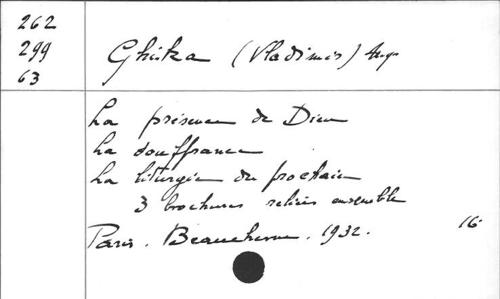 262
299
63
Ghika (Vladimir) Mgr
La présence de Dieu
La souffrance
La liturgie du prochain
3 brochures reliées ensemble
Paris. Beauchesne. 1932. 16°